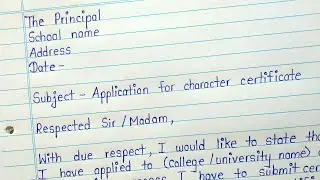 The Principal
School name
Address
Date -
Subject - Application for character certificate
Respected Sir / Madam,
With due respect, I would like to state tha
I have applied to (college / university name)
I have to submit cer